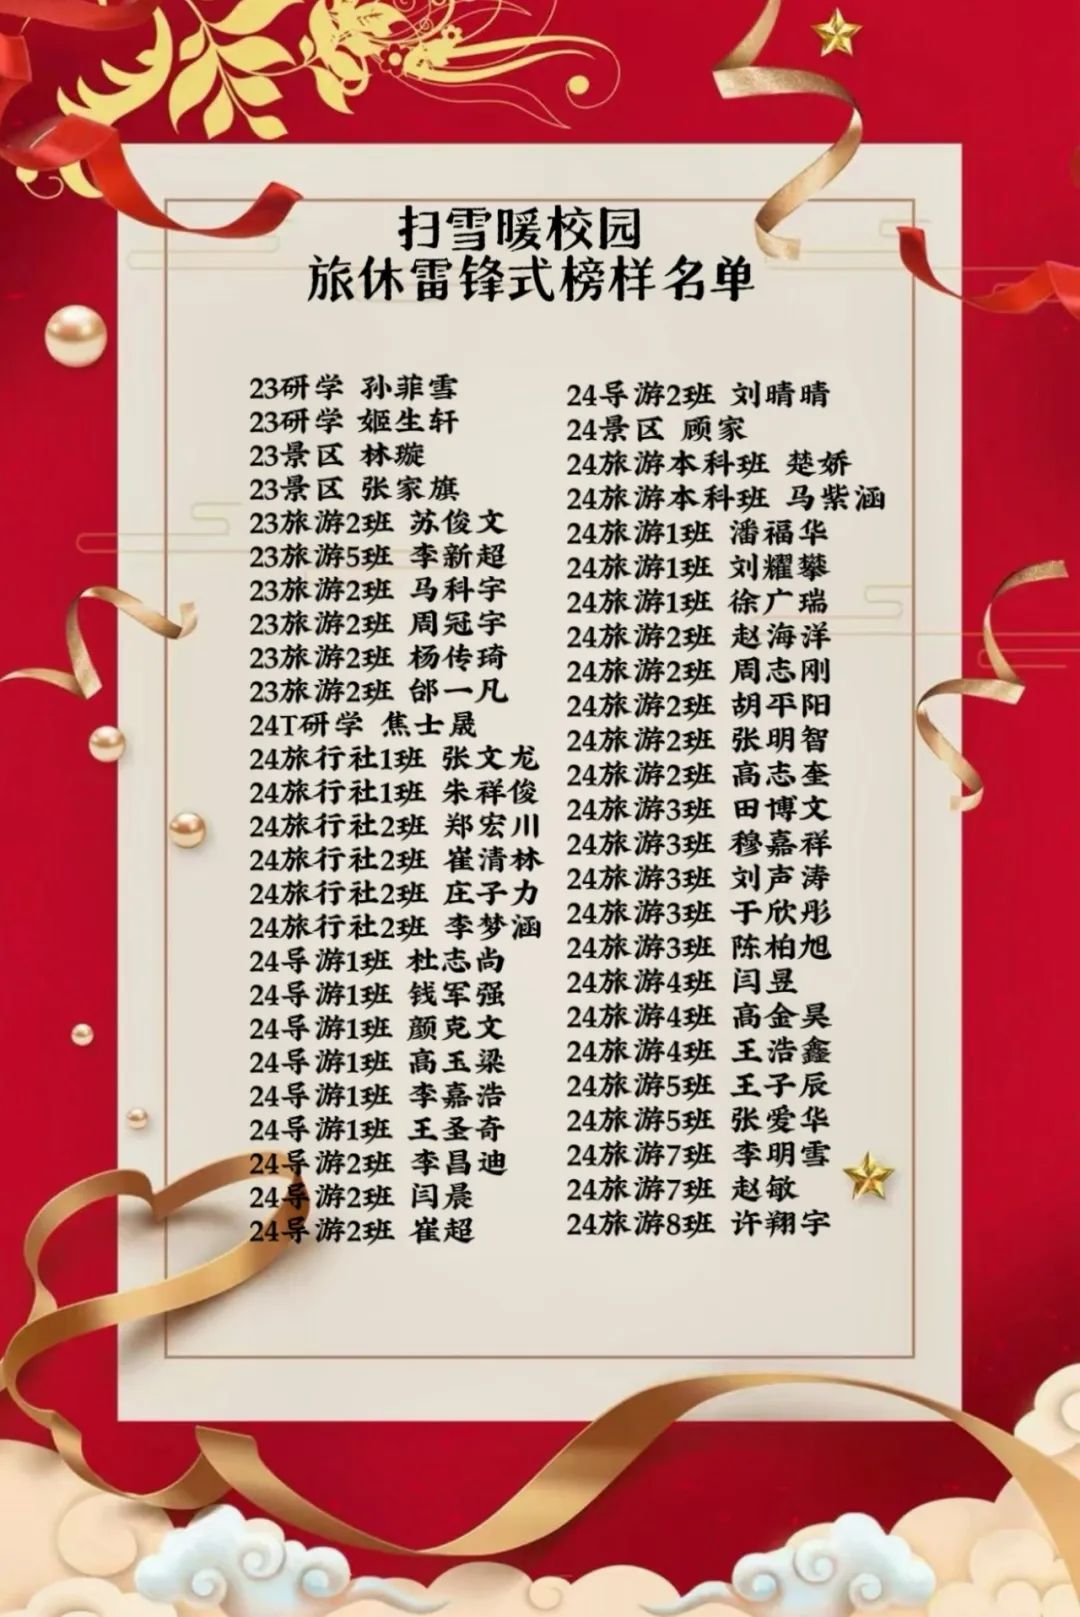 扫雪暖校园
旅休雷锋式榜样名单
23研学 孙菲雪
23研学 姬生轩
23景区 林璇
23景区 张家旗
23旅游2班 苏俊文
23旅游5班 李新超
23旅游2班 马科宇
23旅游2班 周冠宇
23旅游2班 杨传琦
23旅游2班 邰一凡
24T研学 焦士晟
24旅行社1班 张文龙
24旅行社1班 朱祥俊
24旅行社2班 郑宏川
24旅行社2班 崔清林
24旅行社2班 庄子力
24旅行社2班 李梦涵
24导游1班 杜志尚
24导游1班 钱军强
24导游1班 颜克文
24导游1班 高玉梁
24导游1班 李嘉浩
24导游1班 王圣奇
24导游2班 李昌迪
24导游2班 闫晨
24导游2班 崔超
24导游2班 刘晴晴
24景区 顾家
24旅游本科班 楚娇
24旅游本科班 马紫涵
24旅游1班 潘福华
24旅游1班 刘耀攀
24旅游1班 徐广瑞
24旅游2班 赵海洋
24旅游2班 周志刚
24旅游2班 胡平阳
24旅游2班 张明智
24旅游2班 高志奎
24旅游3班 田博文
24旅游3班 穆嘉祥
24旅游3班 刘声涛
24旅游3班 于欣彤
24旅游3班 陈柏旭
24旅游4班 闫昱
24旅游4班 高金昊
24旅游4班 王浩鑫
24旅游5班 王子辰
24旅游5班 张爱华
24旅游7班 李明雪
24旅游7班 赵敏
24旅游8班 许翔宇